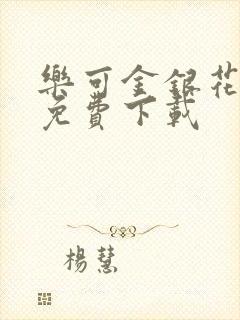 樂可金銀花
免費下載
楊慧